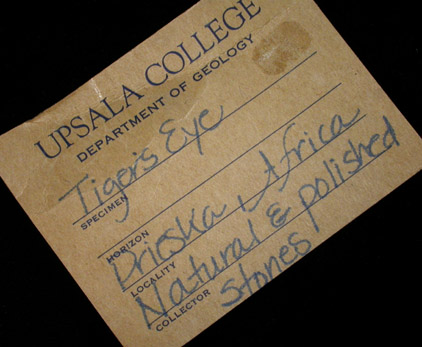 UPSALA COLLEGE
DEPARTMENT OF GEOLOGY
Tiger's Eye
SPECIMEN
HORIZON
Prieska, Africa
LOCALITY
Natural & polished
COLLECTOR
stones